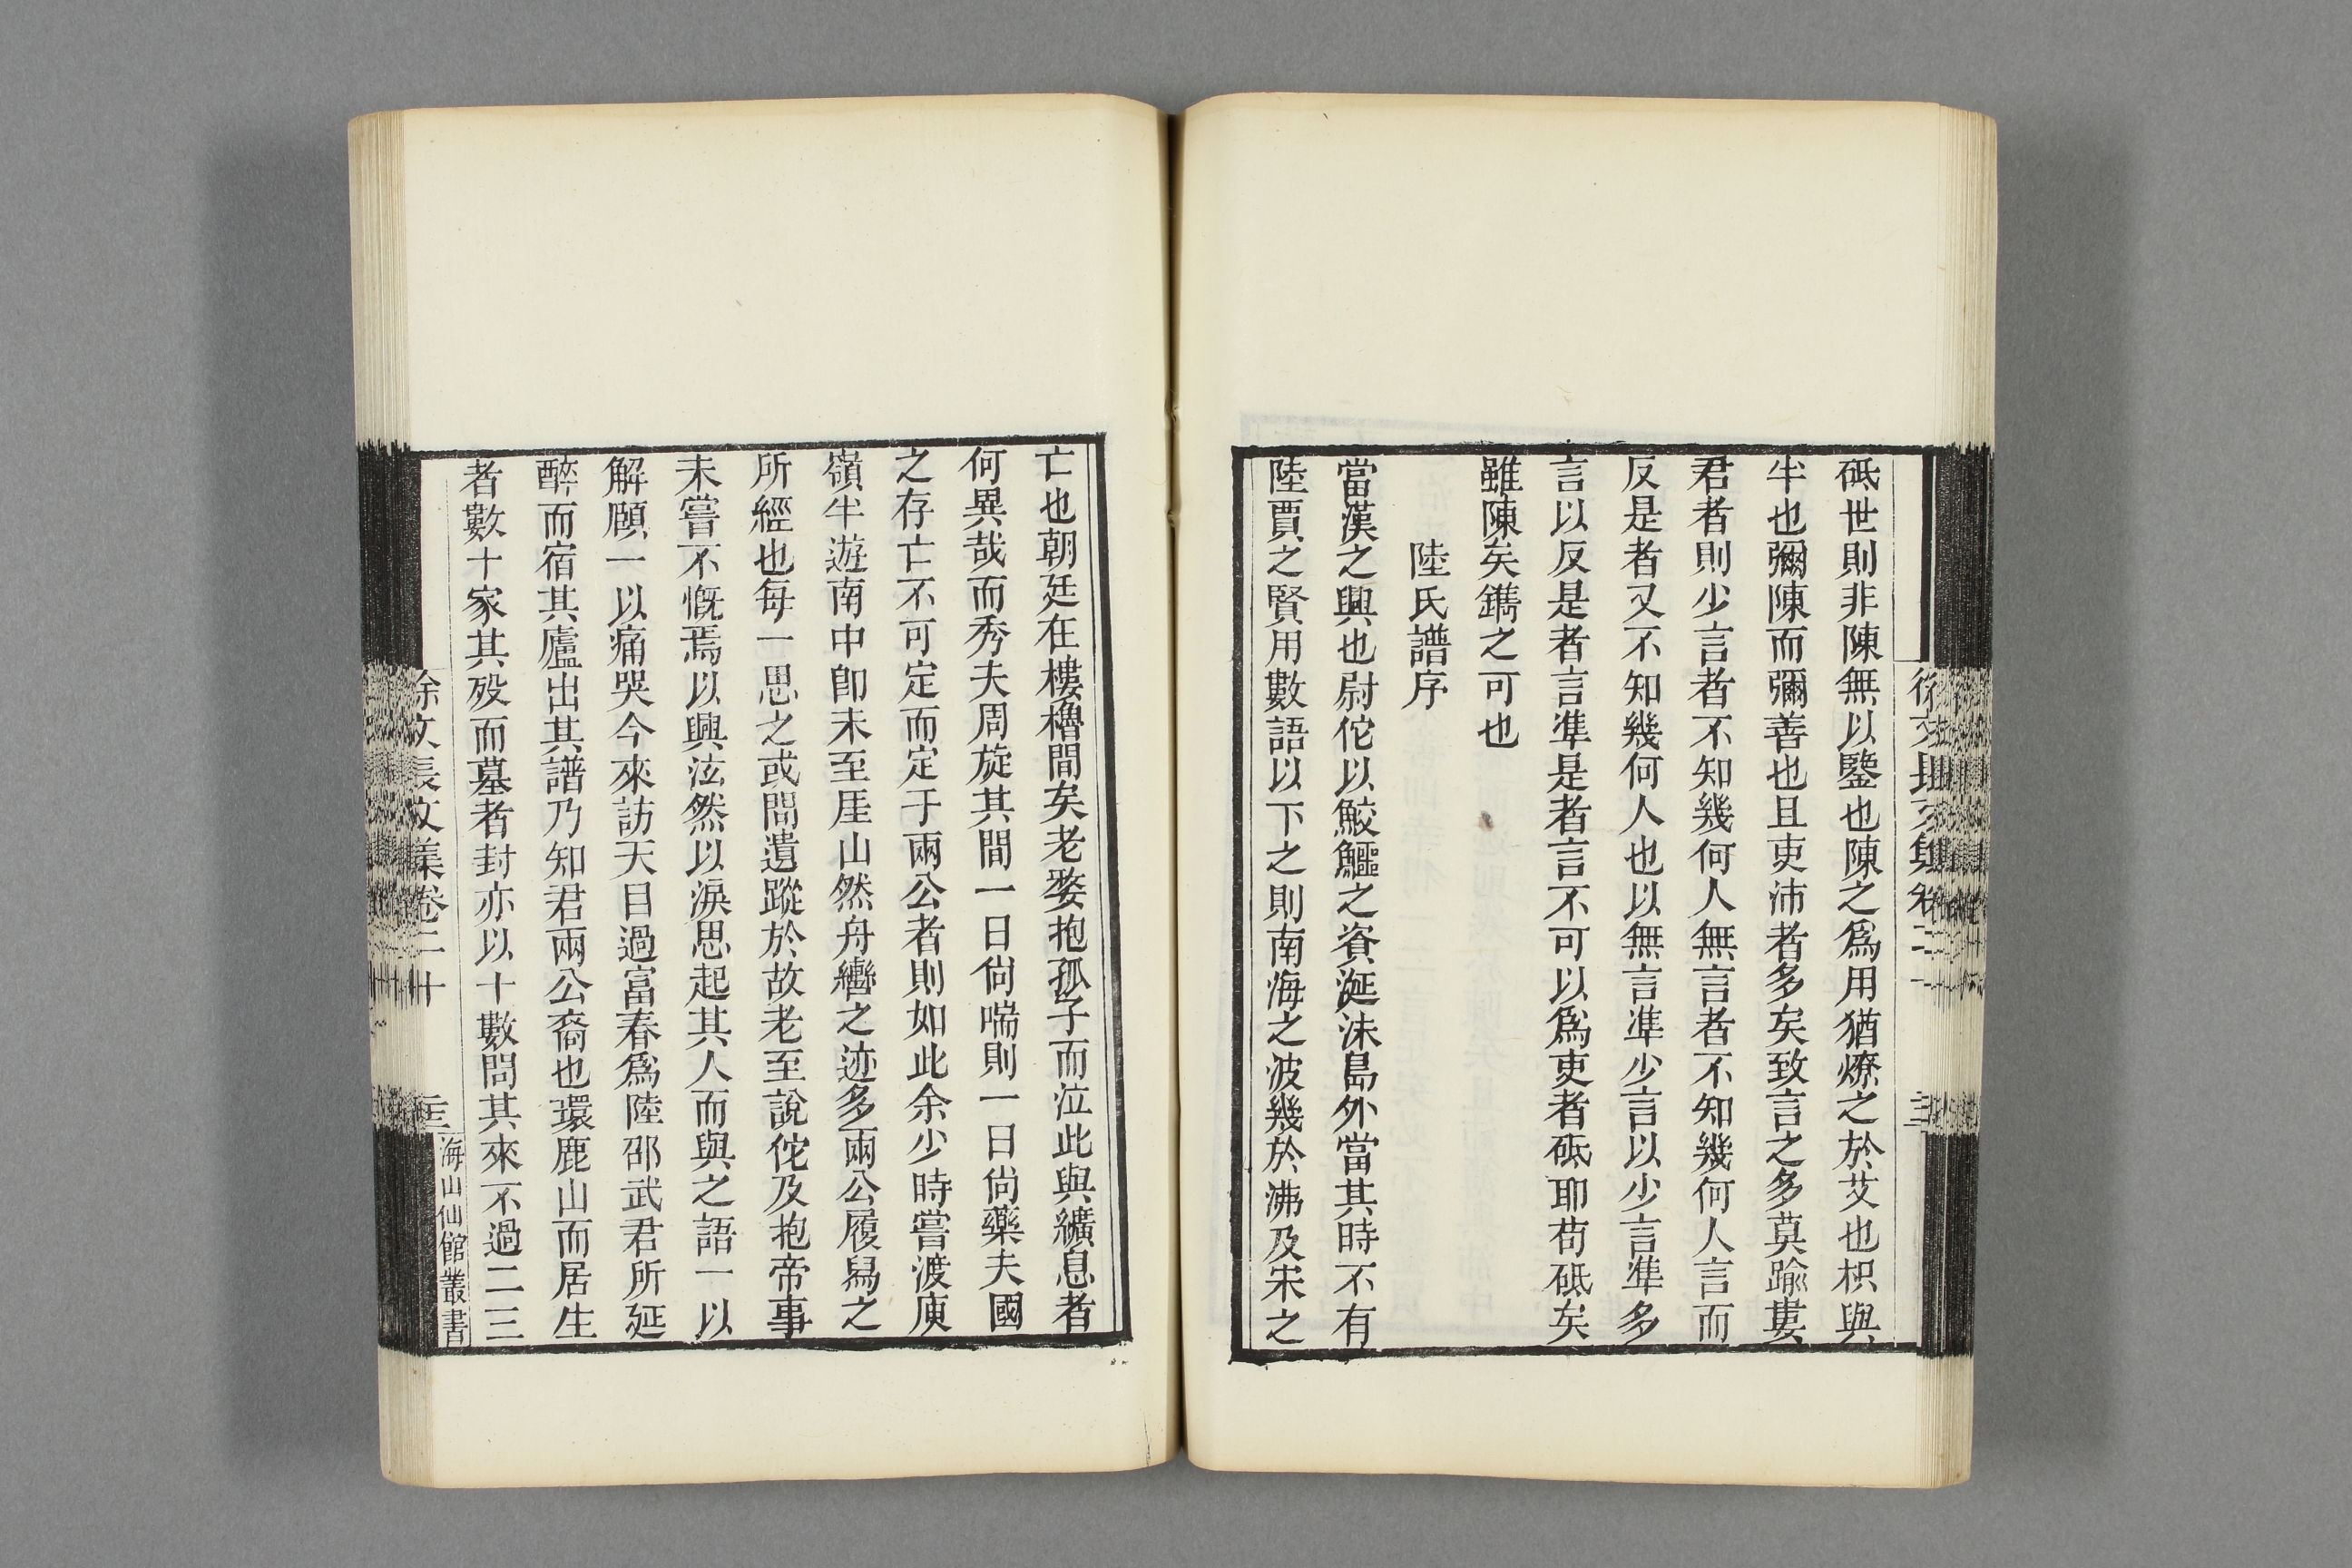 砥世則非陳無以鑒也陳之爲用猶燎之於艾也枳與
半也彌陳而彌善也且吏沛者多矣致言之多莫踰婁
君者則少言者不知幾何人無言者不知幾何人言而
反是者又不知幾何人也以無言準少言以少言準多
言以反是者言準是者言不可以爲吏者砥耶苟砥矣
雖陳矣鐫之可也
陸氏譜序
當漢之興也尉佗以鮫鱷之資涎沬島外當其時不有
陸賈之賢用數語以下之則南海之波幾於沸及宋之
亡也朝廷在樓櫓間矣老婺抱孤子而泣此與纊息者
何異哉而秀夫周旋其間一日尙喘則一日尙藥夫國
之存亡不可定而定于兩公者則如此余少時嘗渡庾
嶺半遊南中卽未至厓山然舟轡之迹多兩公履舄之
所經也每一思之或問遺蹤於故老至說佗及抱帝事
未嘗不慨焉以興泫然以淚思起其人而與之語一以
解頤一以痛哭今來訪天目過富春爲陸邵武君所延
醉而宿其廬出其譜乃知君兩公裔也環鹿山而居生
者數十家其歿而墓者封亦以十數問其來不過二三
徐文長文集卷二十
海山仙館叢書